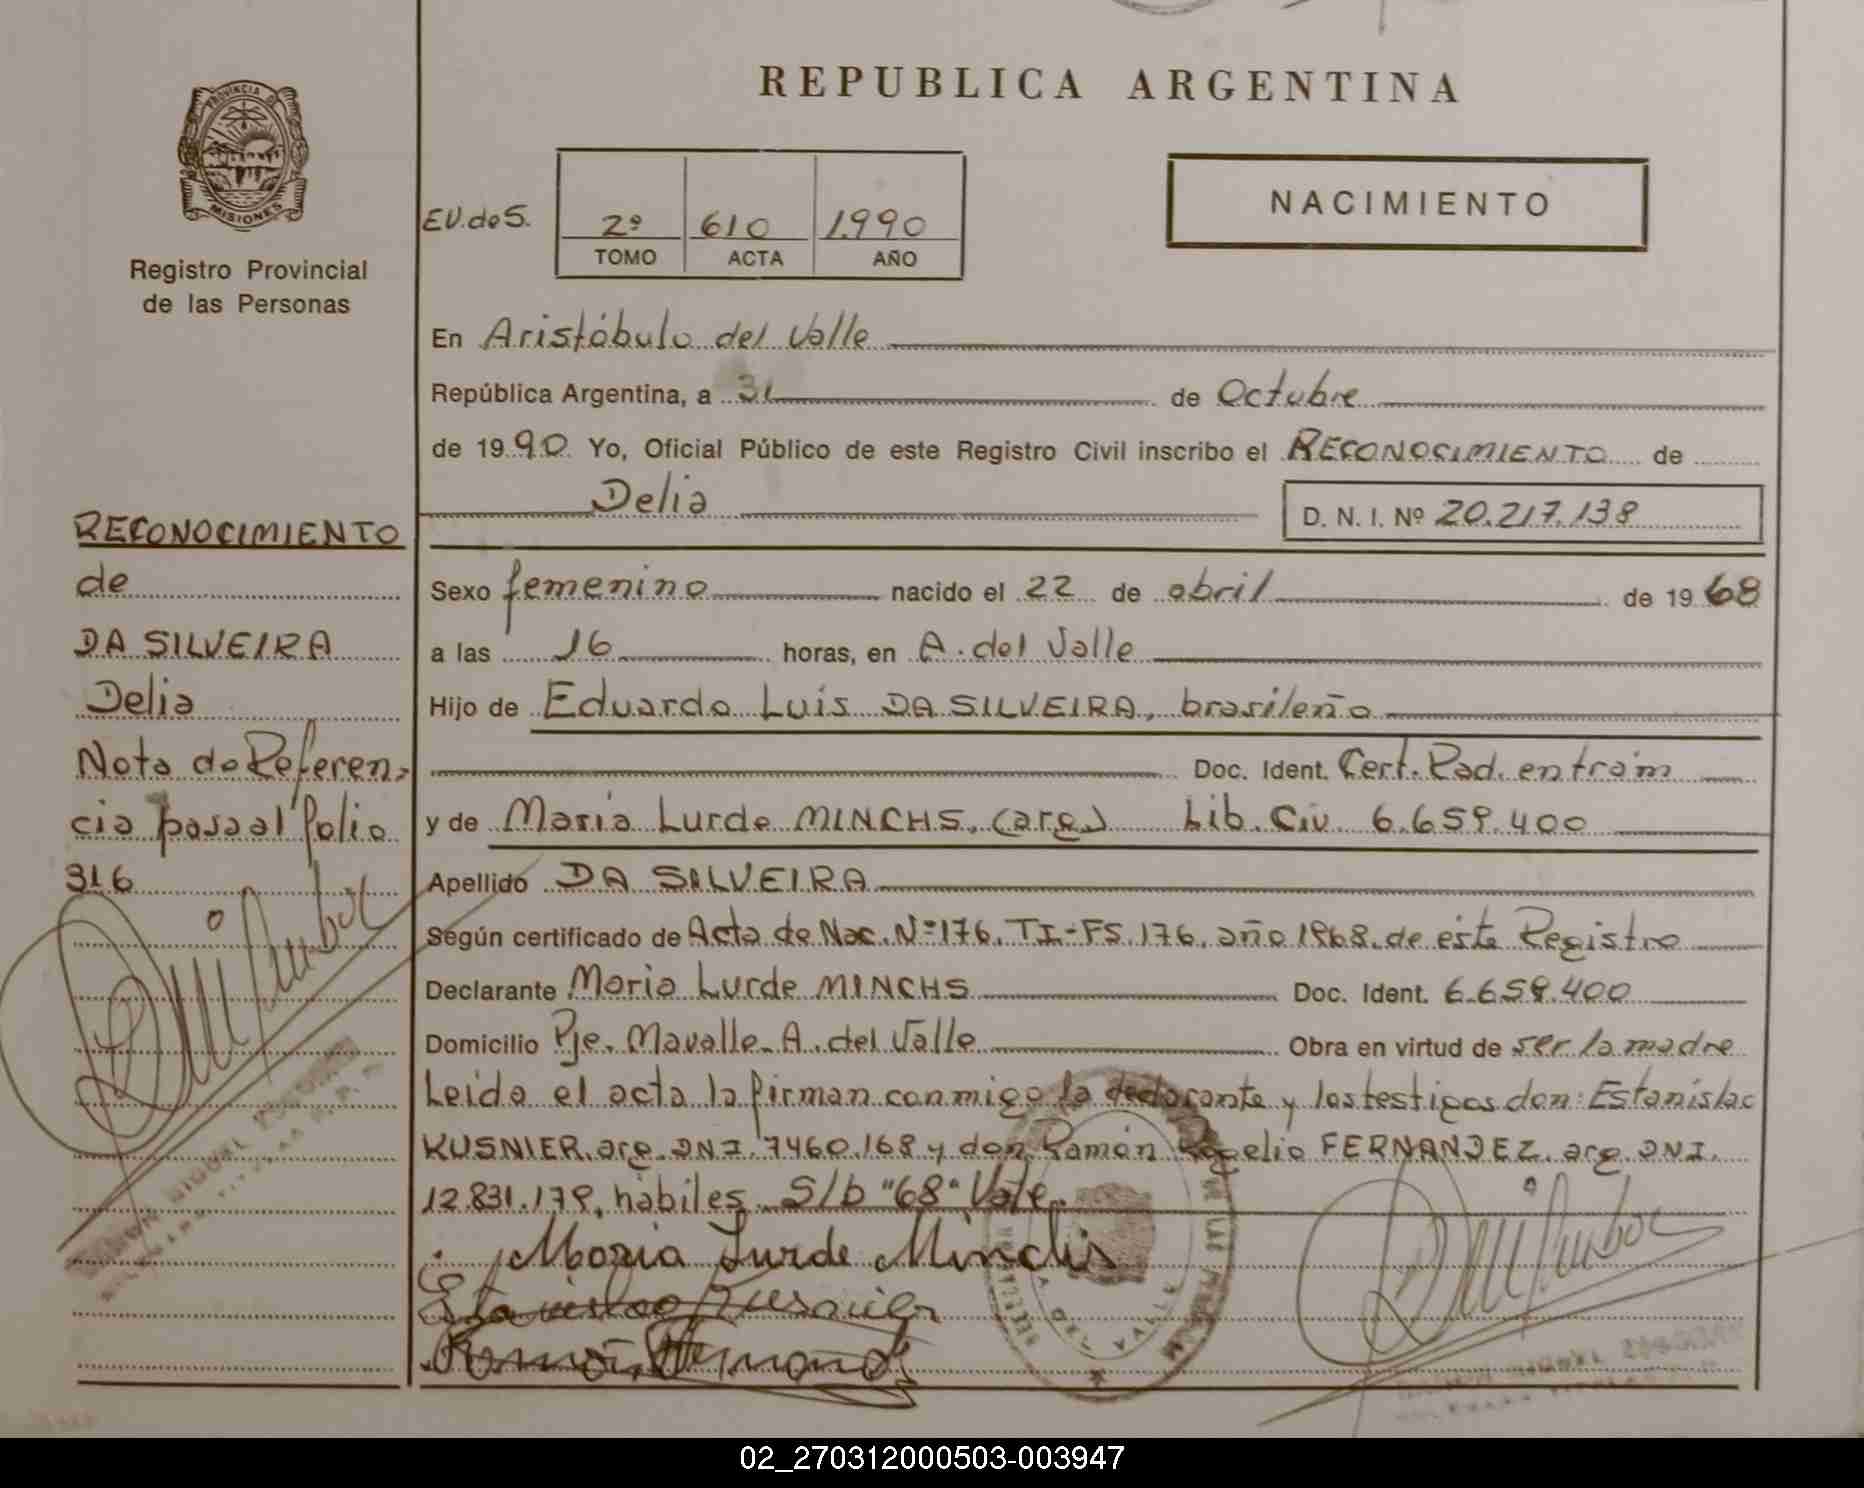 REPUBLICA ARGENTINA
PROVINCIA DE
MISIONES
Registro Provincial
de las Personas
NACIMIENTO
EV. de S.
2º 610 1990
TOMO ACTA AÑO
En Aristóbulo del Valle
República Argentina, a 31 de Octubre
de 1990 Yo, Oficial Público de este Registro Civil inscribo el RECONOCIMIENTO de
Delia
D. N. I. Nº 20.217.138
Sexo femenino nacido el 22 de abril de 1968
a las 16 horas, en A. del Valle
Hijo de Eduardo Luis DA SILVEIRA, brasileño
Doc. Ident. Cert. Rad. en trám
y de Maria Lurde MINCHS, (arg) Lib. Civ. 6.659.400
Apellido DA SILVEIRA
Según certificado de Acta de Nac. Nº 176. TI-FS. 176. año 1968. de este Registro
Declarante Maria Lurde MINCHS Doc. Ident. 6.659.400
Domicilio Pje. Mavalle- A. del Valle Obra en virtud de ser la madre
Leida el acta la firman conmigo la declarante y los testigos don: Estanislao
KUSNIER. arg. DNI. 7460.168 y don Ramón Rogelio FERNANDEZ. arg. DNI.
12.831.179, hábiles. S/b "68" Vale.
Maria Lurde Minchs
RECONOCIMIENTO
de
DA SILVEIRA
Delia
Nota de Referen-
cia pasa al folio
316
02_270312000503-003947